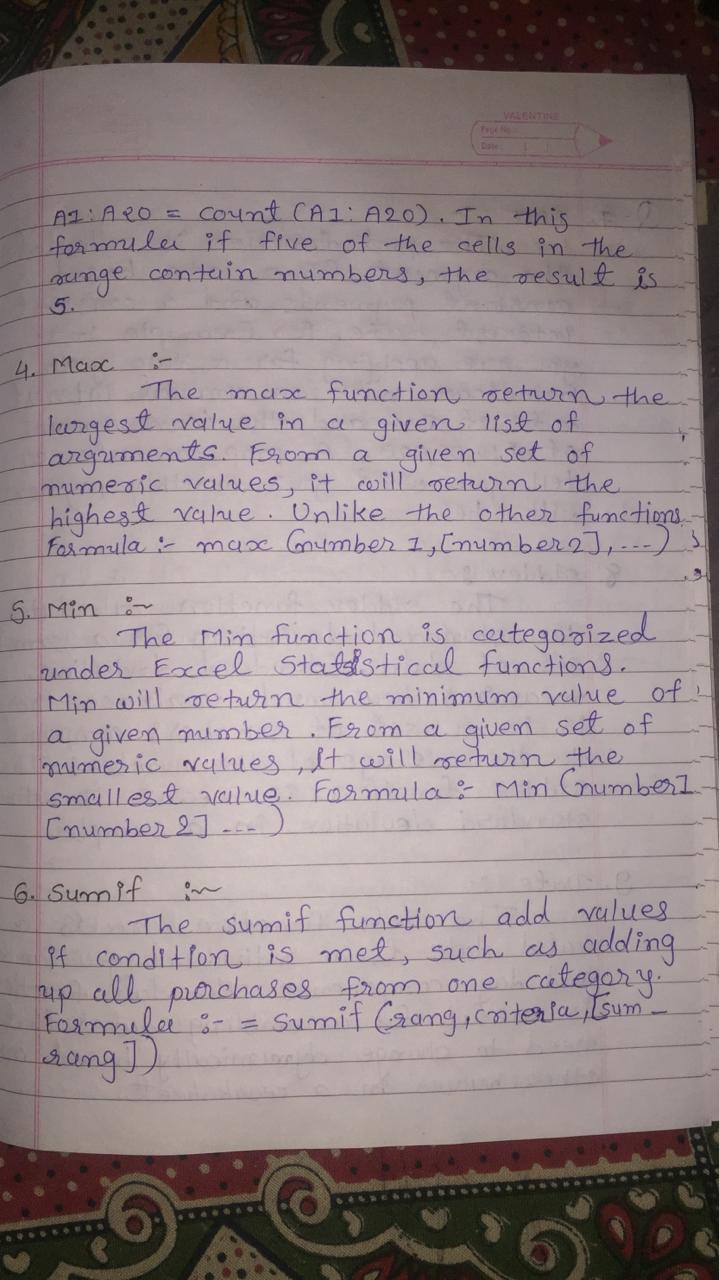 VALENTINE
Page No.:
Date:
A1:A20 = count (A1: A20). In this
formula if five of the cells in the
range contain numbers, the result is
5.
4. Max :-
The max function return the
largest value in a given list of
arguments. From a given set of
numeric values, it will return the
highest value. Unlike the other functions
Formula :- max (number 1, [number2], ---)
5. Min :-
The Min function is categorized
under Excel Statistical functions.
Min will return the minimum value of
a given number. From a given set of
numeric values, It will return the
smallest value. Formula :- Min (number1
[number 2] ---)
6. Sumif :-
The sumif function add values
if condition is met, such as adding
up all purchases from one category.
Formula :- = Sumif (rang, criteria, [sum-
rang])